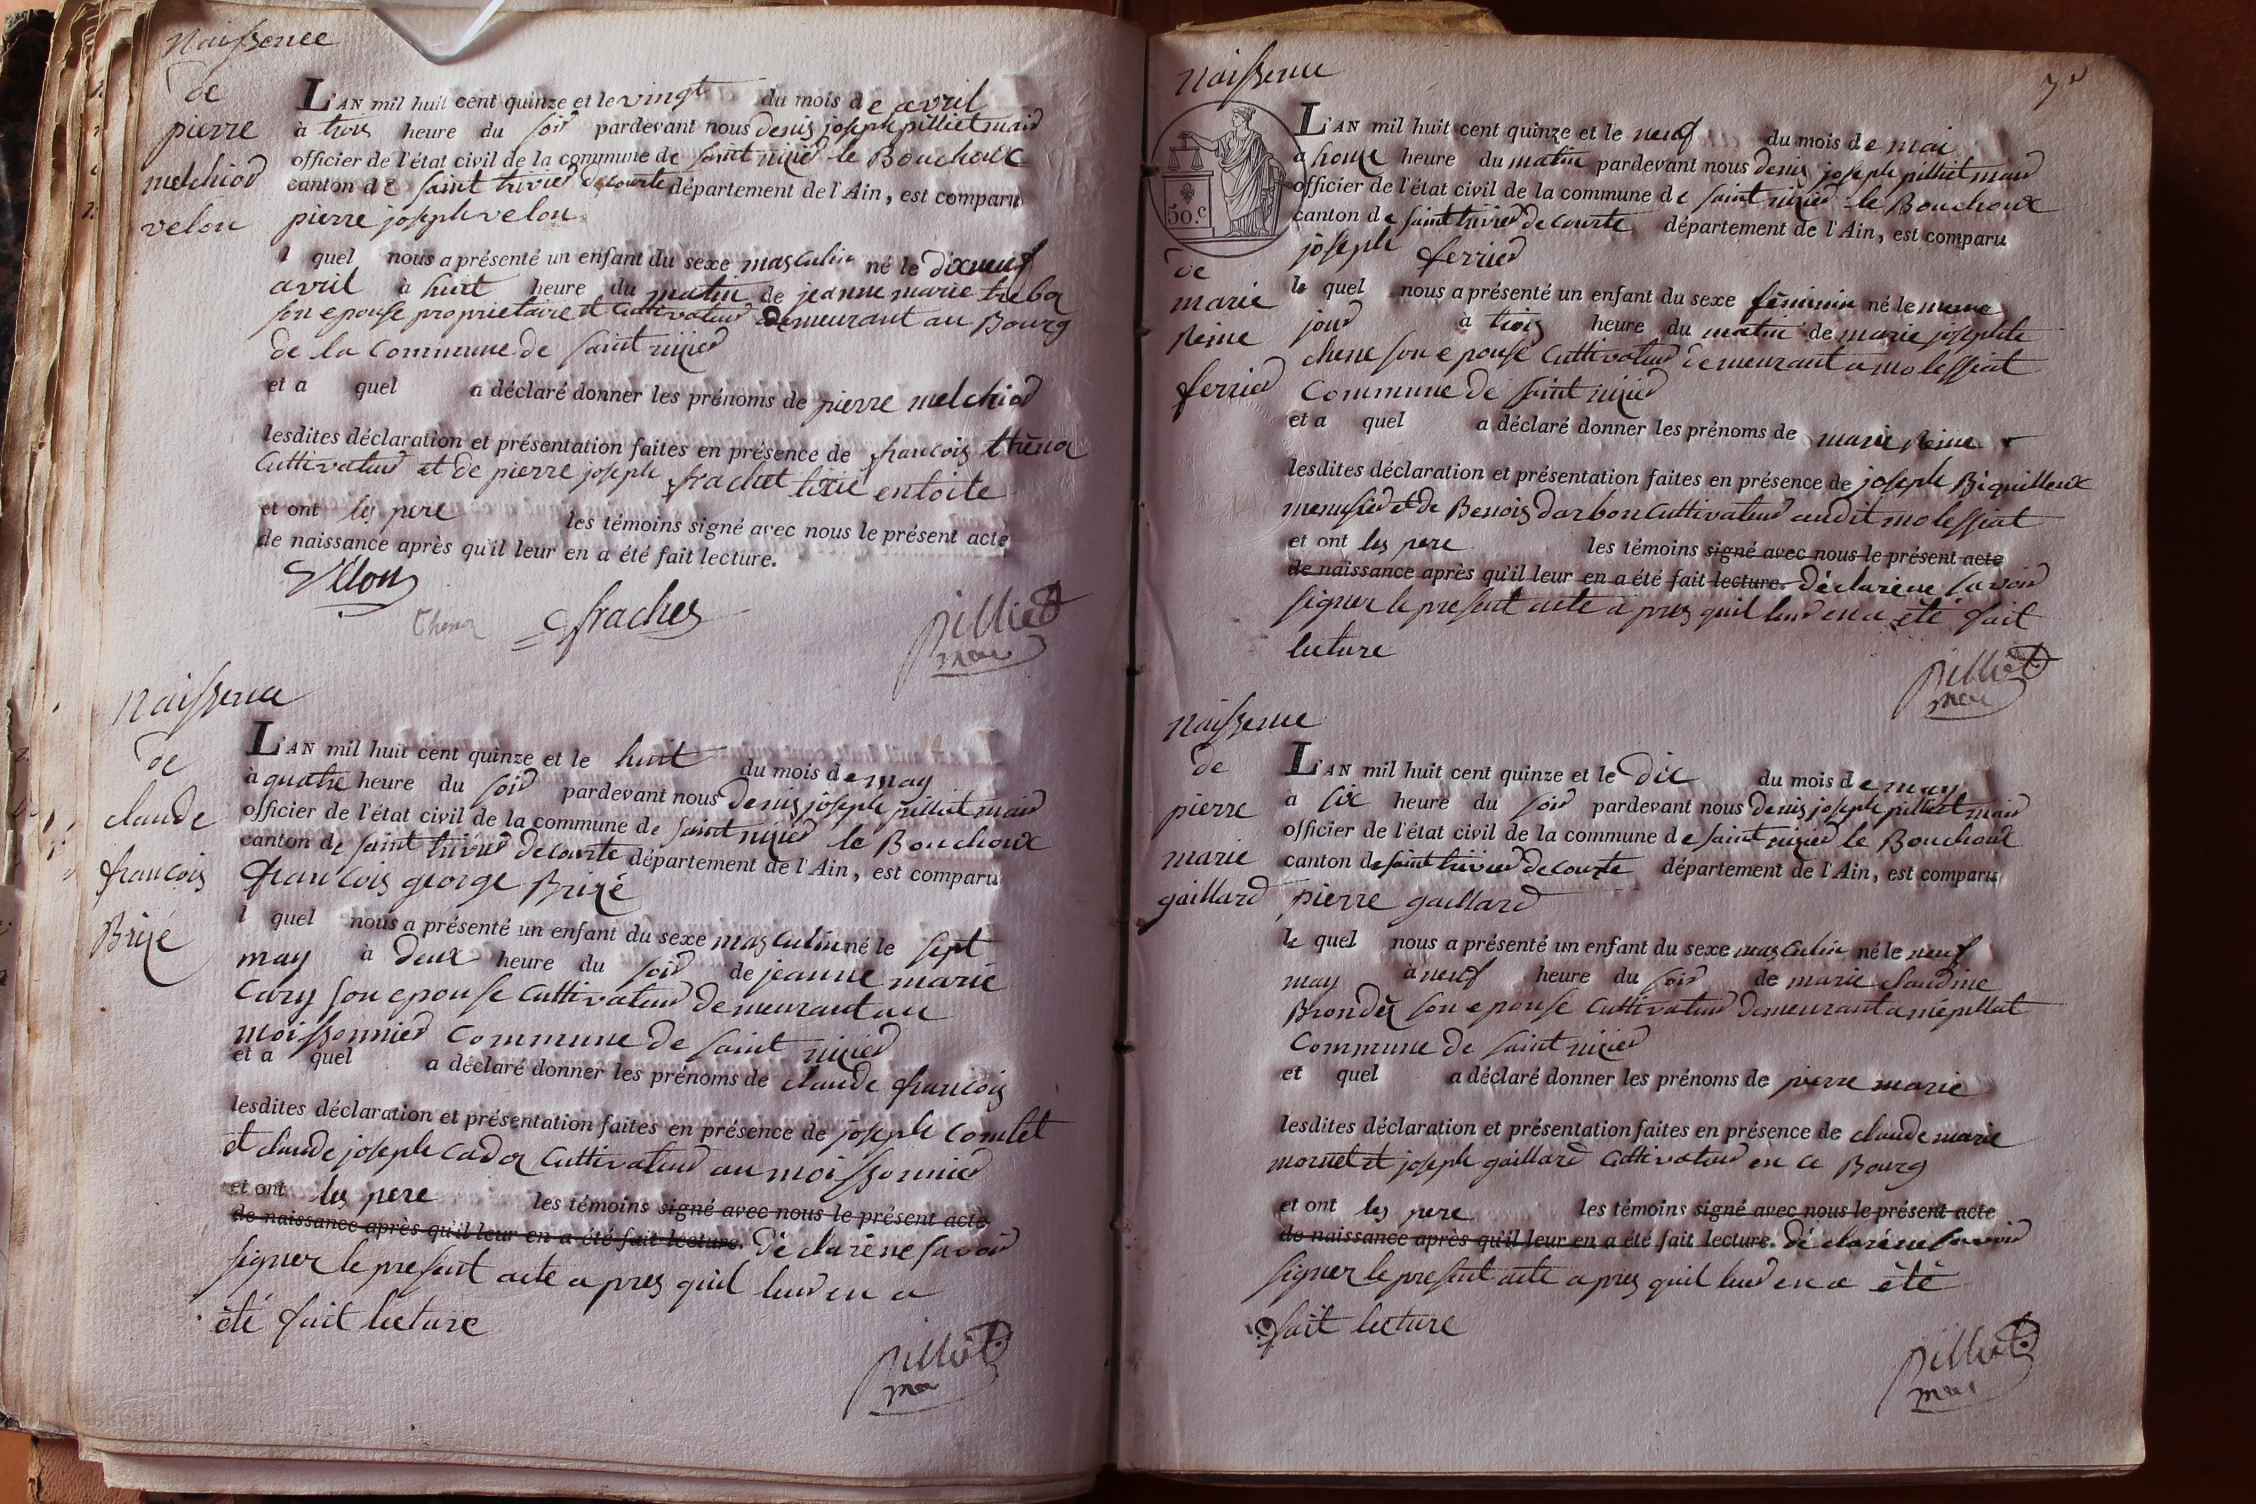 Naissence
de
pierre
melchior
velon
L'AN mil huit cent quinze et le vingt du mois de avril
à trois heure du soir pardevant nous denis joseph pilliet mair
officier de l'état civil de la commune de saint nizier le Bouchoux
canton de saint trivier de courte département de l'Ain, est comparu
pierre joseph velon
l quel nous a présenté un enfant du sexe masculin né le dixneuf
avril à huit heure du matin de jeanne marie
son epouse proprietaire et cultivateur demeurant au Bourg
de la commune de saint nizier
et a quel a déclaré donner les prénoms de pierre melchior
lesdites déclaration et présentation faites en présence de francois
cultivateur et de pierre joseph frachet
et ont les pere les témoins signé avec nous le présent acte
de naissance après qu'il leur en a été fait lecture.
Velon
Thena
frachet
pilliet
mair
Naissence
de
claude
francois
Brizé
L'AN mil huit cent quinze et le huit du mois de may
à quatre heure du soir pardevant nous denis joseph pilliet mair
officier de l'état civil de la commune de saint nizier le Bouchoux
canton de saint trivier de courte département de l'Ain, est comparu
francois george Brizé
l quel nous a présenté un enfant du sexe masculin né le sept
may à deux heure du soir de jeanne marie
Cary son epouse cultivateur demeurant au
moissonnier commune de saint nizier
et a quel a déclaré donner les prénoms de claude francois
lesdites déclaration et présentation faites en présence de joseph comtet
et claude joseph Cador cultivateur au moissonnier
et ont les pere les témoins signé avec nous le présent acte
de naissance après qu'il leur en a été fait lecture. déclaré ne savoir
signer le present acte apres quil leur en a
été fait lecture
pilliet
mair
Naissence
50.c
de
marie
Reine
ferrier
L'AN mil huit cent quinze et le neuf du mois de mai
a honze heure du matin pardevant nous denis joseph pilliet mair
officier de l'état civil de la commune de saint nizier le Bouchoux
canton de saint trivier de courte département de l'Ain, est comparu
joseph ferrier
le quel nous a présenté un enfant du sexe féminin né le meme
jour à trois heure du matin de marie josephte
chene son epouse cultivateur demeurant a molessiat
Commune de saint nizier
et a quel a déclaré donner les prénoms de marie Reine
lesdites déclaration et présentation faites en présence de joseph Biquilleux
menusier et de Benois darbon cultivateur audit molessiat
et ont les pere les témoins signé avec nous le présent acte
de naissance après qu'il leur en a été fait lecture. déclaré ne savoir
signer le present acte a pres quil leur en a été fait
lecture
pilliet
mair
Naissence
de
pierre
marie
gaillard
L'AN mil huit cent quinze et le dix du mois de may
a six heure du soir pardevant nous denis joseph pilliet mair
officier de l'état civil de la commune de saint nizier le Bouchoux
canton de saint trivier de courte département de l'Ain, est comparu
pierre gaillard
le quel nous a présenté un enfant du sexe masculin né le neuf
may à neuf heure du soir de marie claudine
Brondel son epouse cultivateur demeurant a mépillat
Commune de saint nizier
et quel a déclaré donner les prénoms de pierre marie
lesdites déclaration et présentation faites en présence de claude marie
mornet et joseph gaillard cultivateur en ce Bourg
et ont les pere les témoins signé avec nous le présent acte
de naissance après qu'il leur en a été fait lecture. déclaré ne savoir
signer le present acte apres quil leur en a été
fait lecture
pilliet
mair